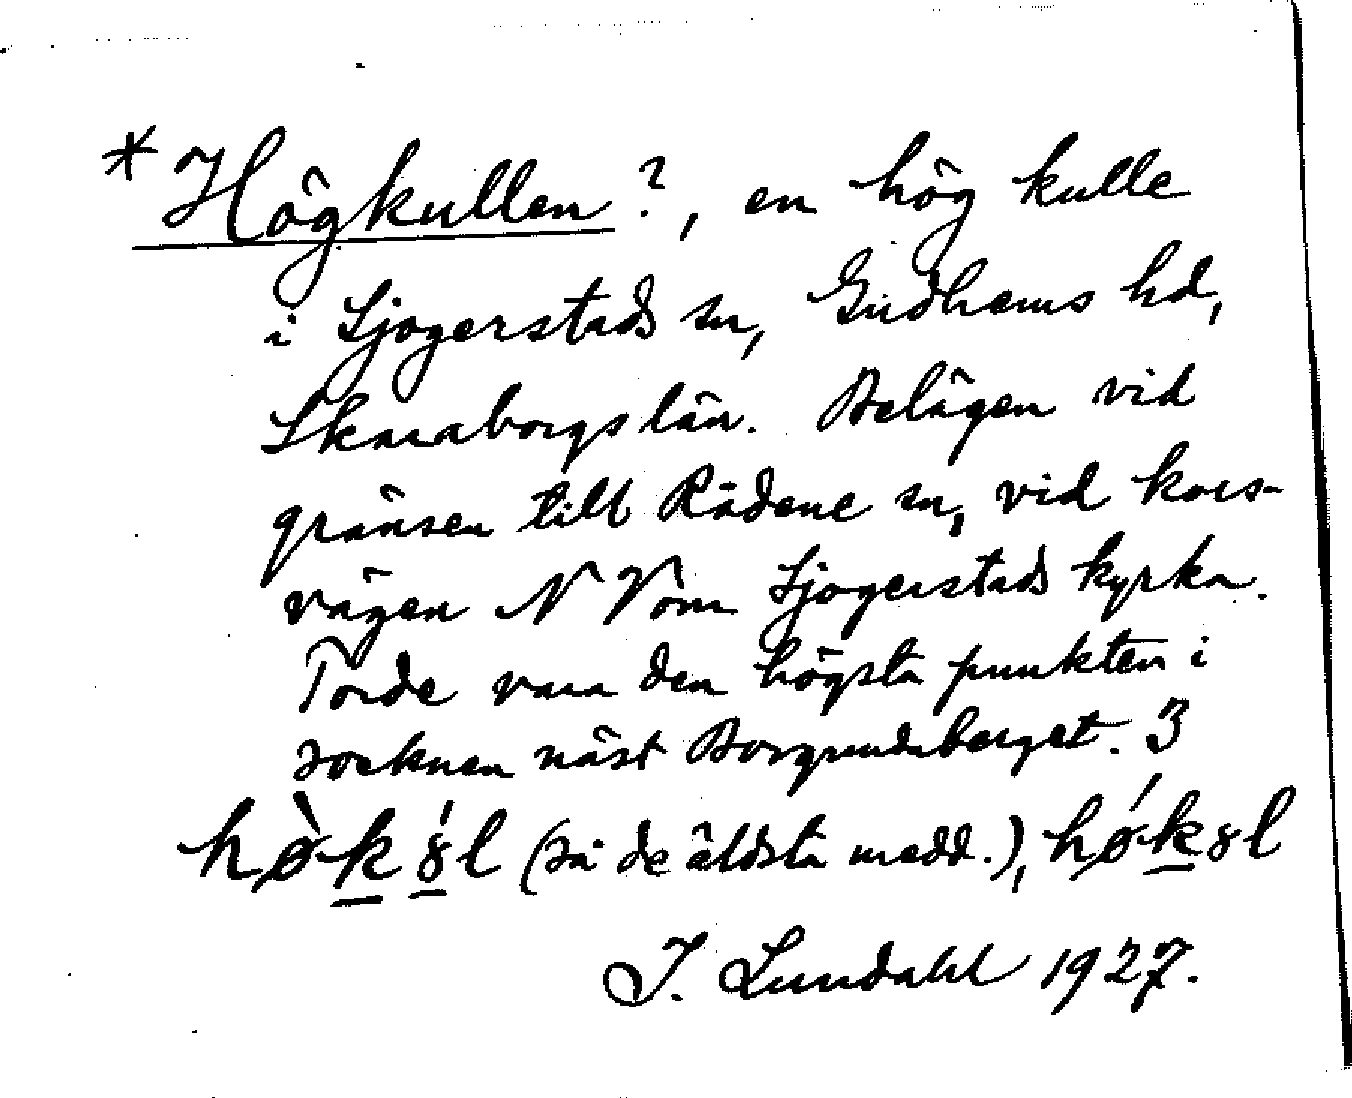 * Högkullen?, en hög kulle
i Sjogerstads sn, Gudhems hd,
Skaraborgs län. Belägen vid
gränsen till Rådene sn, vid kors-
vägen N V om Sjogerstads kyrka.
Torde vara den högsta punkten i
socknen näst Borgundaberget. 3
(så de äldsta medd.),
J. Lundahl 1927.